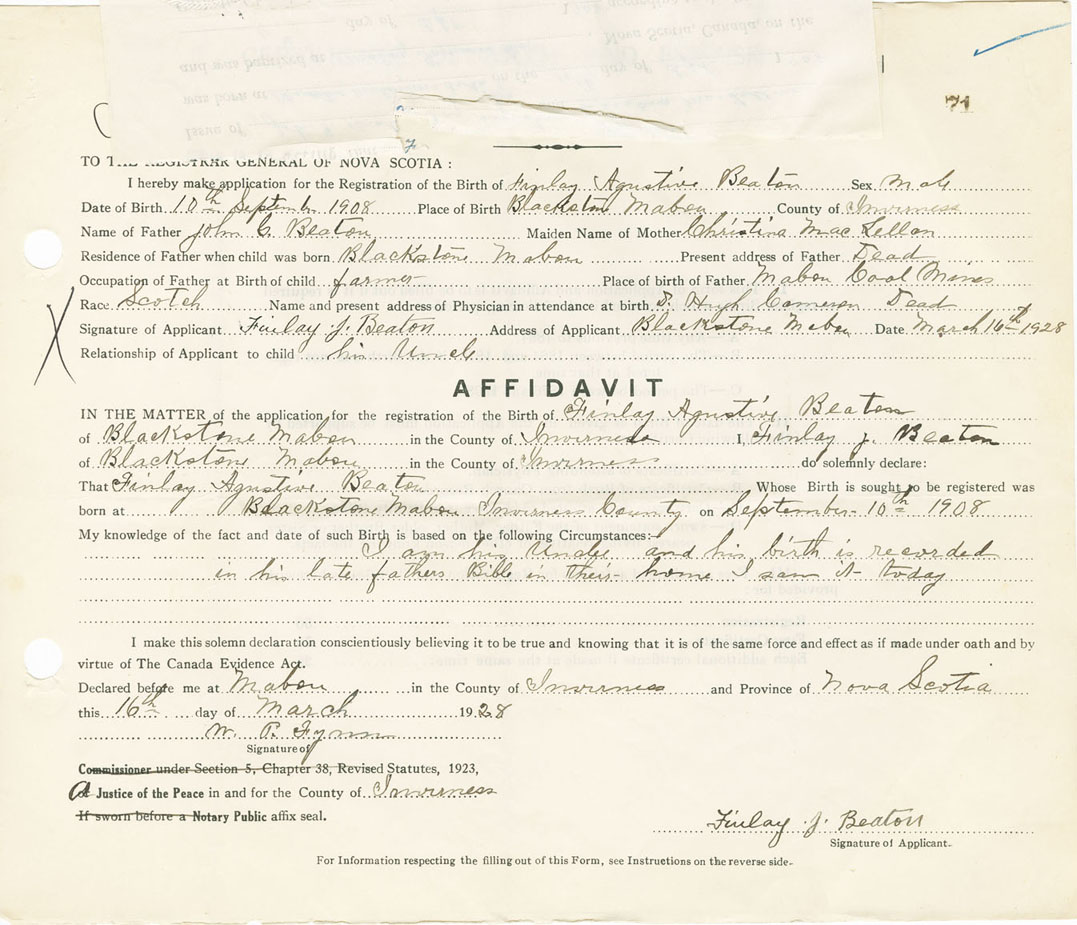 71
TO THE REGISTRAR GENERAL OF NOVA SCOTIA :
I hereby make application for the Registration of the Birth of Finlay Agustive Beaton Sex Male
Date of Birth 10th September 1908 Place of Birth Blackstone Mabou County of Inverness
Name of Father John C. Beaton Maiden Name of Mother Christina Mac Lellan
Residence of Father when child was born Blackstone Mabou Present address of Father Dead
Occupation of Father at Birth of child farmer Place of birth of Father Mabou Coal Mines
Race Scotch Name and present address of Physician in attendance at birth Dr. Hugh Cameron Dead
Signature of Applicant Finlay J. Beaton Address of Applicant Blackstone Mabou Date March 16th 1928
Relationship of Applicant to child his Uncle
AFFIDAVIT
IN THE MATTER of the application for the registration of the Birth of Finlay Agustive Beaton
of Blackstone Mabou in the County of Inverness I, Finlay J. Beaton
of Blackstone Mabou in the County of Inverness do solemnly declare:
That Finlay Agustive Beaton Whose Birth is sought to be registered was
born at Blackstone Mabou Inverness County on September 10th 1908
My knowledge of the fact and date of such Birth is based on the following Circumstances:—
I am his Uncle and his birth is recorded
in his late fathers Bible in their home I saw it today
I make this solemn declaration conscientiously believing it to be true and knowing that it is of the same force and effect as if made under oath and by
virtue of The Canada Evidence Act.
Declared before me at Mabou in the County of Inverness and Province of Nova Scotia
this 16th day of March 1928
W. P. Fynn
Signature of
Commissioner under Section 5, Chapter 38, Revised Statutes, 1923,
A Justice of the Peace in and for the County of Inverness
If sworn before a Notary Public affix seal.
Finlay J. Beaton
Signature of Applicant.
For Information respecting the filling out of this Form, see Instructions on the reverse side.